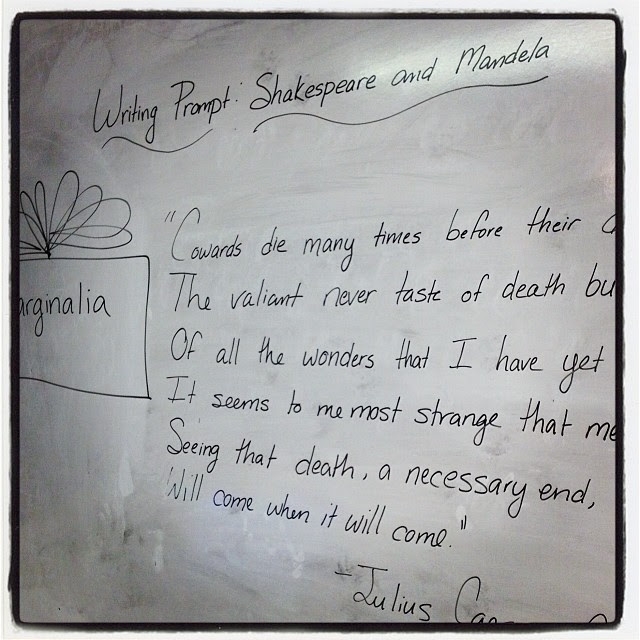 Writing Prompt: Shakespeare and Mandela
arginalia
"Cowards die many times before their
The valiant never taste of death bu
Of all the wonders that I have yet
It seems to me most strange that me
Seeing that death, a necessary end,
Will come when it will come."
-Julius Cae